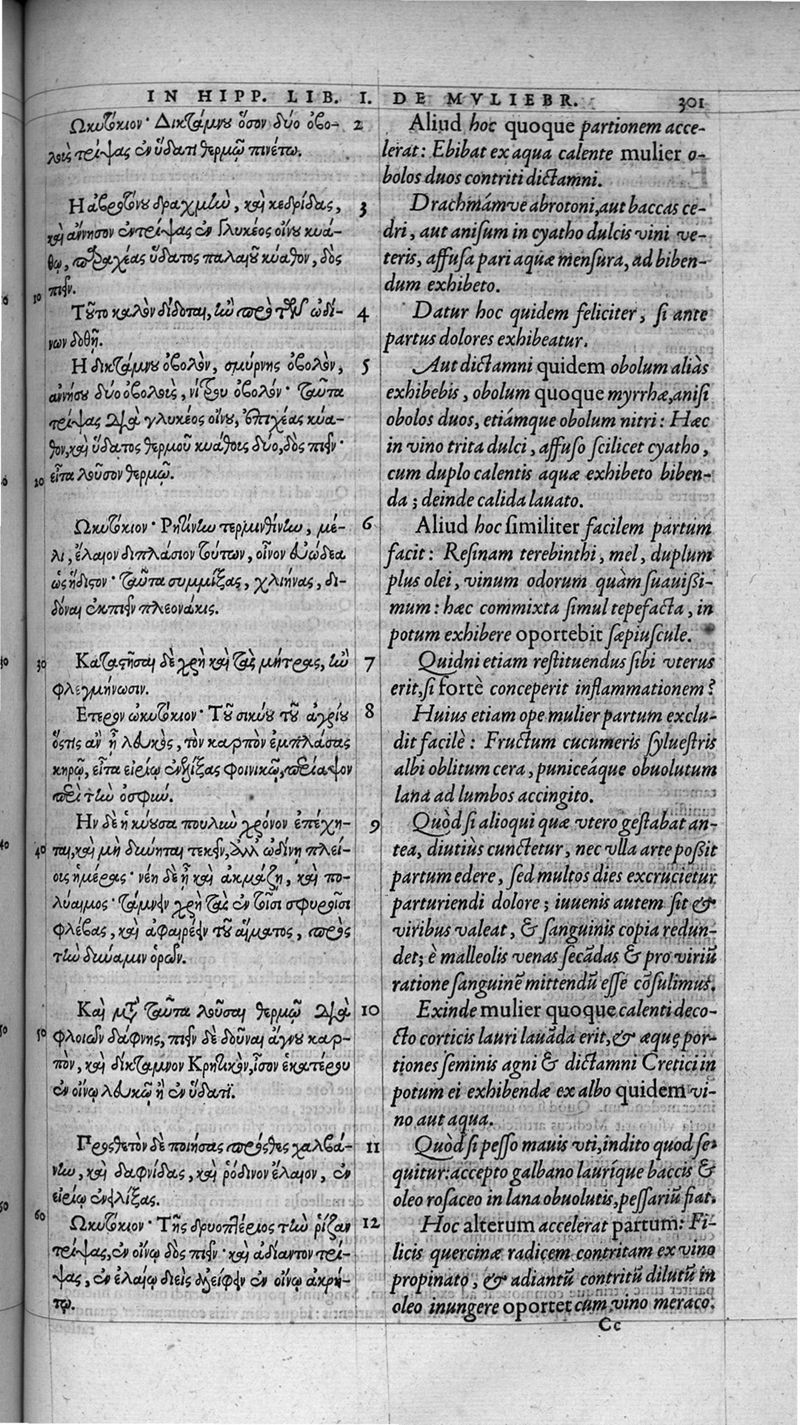 IN HIPP. LIB. I. DE MVLIEBR. 301
Ωκυτόκιον· Δικτάμνου ὅσον δύο ὀβο-
λοὺς τρίψας ἐν ὕδατι θερμῷ πινέτω.
Η ἀβροτόνου δραχμὴν, καὶ κεδρίδας,
καὶ ἄννησον ἐντρίψας ἐν γλυκέος οἴνου κυά-
θῳ, παραχέας ὕδατος παλαιοῦ κύαθον, δὸς
10 πιεῖν.
Τοῦτο καλὸν δίδοται, ἢν πρὸ τῶν ὠδί-
νων δοθῇ.
Η δικτάμνου ὀβολὸν, σμύρνης ὀβολὸν,
ἀννήσου δύο ὀβολοὺς, νίτρου ὀβολόν· ταῦτα
τρίψας διὰ γλυκέος οἴνου, ἐπιχέας κύα-
θον, καὶ ὕδατος θερμοῦ κυάθους δύο, δὸς πιεῖν·
20 εἶτα λοῦσον θερμῷ.
Ωκυτόκιον· Ρητίνην τερμινθίνην, μέ-
λι, ἔλαιον διπλάσιον τούτων, οἶνον εὐώδεα
ὡς ἥδιστον· ταῦτα συμμίξας, χλιήνας, δι-
δόναι ἐκπιεῖν πλεονάκις.
30 Καταστῆσαι δὲ χρὴ καὶ τὰς μήτρας, ἢν
φλεγμήνωσιν.
Ετερον ὠκυτόκιον· Τοῦ σικύου τοῦ ἀγρίου
ὅστις ἂν ᾖ λευκὸς, τὸν καρπὸν ἐμπλάσας
κηρῷ, εἶτα εἰρίῳ ἐνελίξας φοινικῷ, περίαψον
περὶ τὴν ὀσφύν.
Ην δὲ ἡ κύουσα πουλὺν χρόνον ἐπέχη-
40 ται, καὶ μὴ δύνηται τεκεῖν, ἀλλ' ὠδίνῃ πλεί-
οις ἡμέρας· νέη δὲ ᾖ καὶ ἀκμάζῃ, καὶ πο-
λύαιμος· τάμνειν χρὴ τὰς ἐν τοῖσι σφυροῖσι
φλέβας, καὶ ἀφαιρέειν τοῦ αἵματος, πρὸς
τὴν δύναμιν ὁρῶν.
Καὶ μετὰ ταῦτα λοῦσαι θερμῷ διὰ
50 φλοιῶν δάφνης, πιεῖν δὲ δοῦναι ἄγνου καρ-
πὸν, καὶ δίκταμνον Κρητικὸν, ἶσον ἑκατέρου
ἐν οἴνῳ λευκῷ ἢ ἐν ὕδατι.
Πρόσθετον δὲ ποιήσας πρόσθες χαλβά-
νην, καὶ δαφνίδας, καὶ ῥόδινον ἔλαιον, ἐν
εἰρίῳ ἐνελίξας.
60 Ωκυτόκιον· Τῆς δρυοπτέριος τὴν ῥίζαν
τρίψας, ἐν οἴνῳ δὸς πιεῖν· καὶ ἀδίαντον τρί-
ψας, ἐν ἐλαίῳ διεὶς ἀλείφειν ἐν οἴνῳ ἀκρή-
τῳ.
2 Aliud hoc quoque partionem acce-
lerat: Ebibat ex aqua calente mulier o-
bolos duos contriti dictamni.
3 Drachmámve abrotoni, aut baccas ce-
dri, aut anisum in cyatho dulcis vini ve-
teris, affusa pari aquæ mensura, ad biben-
dum exhibeto.
4 Datur hoc quidem feliciter, si ante
partus dolores exhibeatur.
5 Aut dictamni quidem obolum aliàs
exhibebis, obolum quoque myrrhæ, anisi
obolos duos, etiámque obolum nitri: Hæc
in vino trita dulci, affuso scilicet cyatho,
cum duplo calentis aquæ exhibeto biben-
da; deinde calida lauato.
6 Aliud hoc similiter facilem partum
facit: Resinam terebinthi, mel, duplum
plus olei, vinum odorum quàm suauißi-
mum: hæc commixta simul tepefacta, in
potum exhibere oportebit sæpiuscule.
7 Quidni etiam restituendus sibi vterus
erit, si fortè conceperit inflammationem?
8 Huius etiam ope mulier partum exclu-
dit facilè: Fructum cucumeris syluestris
albi oblitum cera, puniceáque obuolutum
lana ad lumbos accingito.
9 Quòd si alioqui quæ vtero gestabat an-
tea, diutiùs cunctetur, nec vlla arte poßit
partum edere, sed multos dies excrucietur
parturiendi dolore; iuuenis autem sit &
viribus valeat, & sanguinis copia redun-
det; è malleolis venas secādas & pro viriū
ratione sanguinē mittendū esse cōsulimus.
10 Exinde mulier quoque calenti deco-
cto corticis lauri lauāda erit, & æquę por-
tiones seminis agni & dictamni Cretici in
potum ei exhibendæ ex albo quidem vi-
no aut aqua.
11 Quòd si pesso mauis vti, indito quod se-
quitur: accepto galbano laurique baccis &
oleo rosaceo in lana obuolutis, pessariū fiat.
12 Hoc alterum accelerat partum: Fi-
licis quercinæ radicem contritam ex vino
propinato, & adiantū contritū dilutū in
oleo inungere oportet cum vino meraco.
Cc